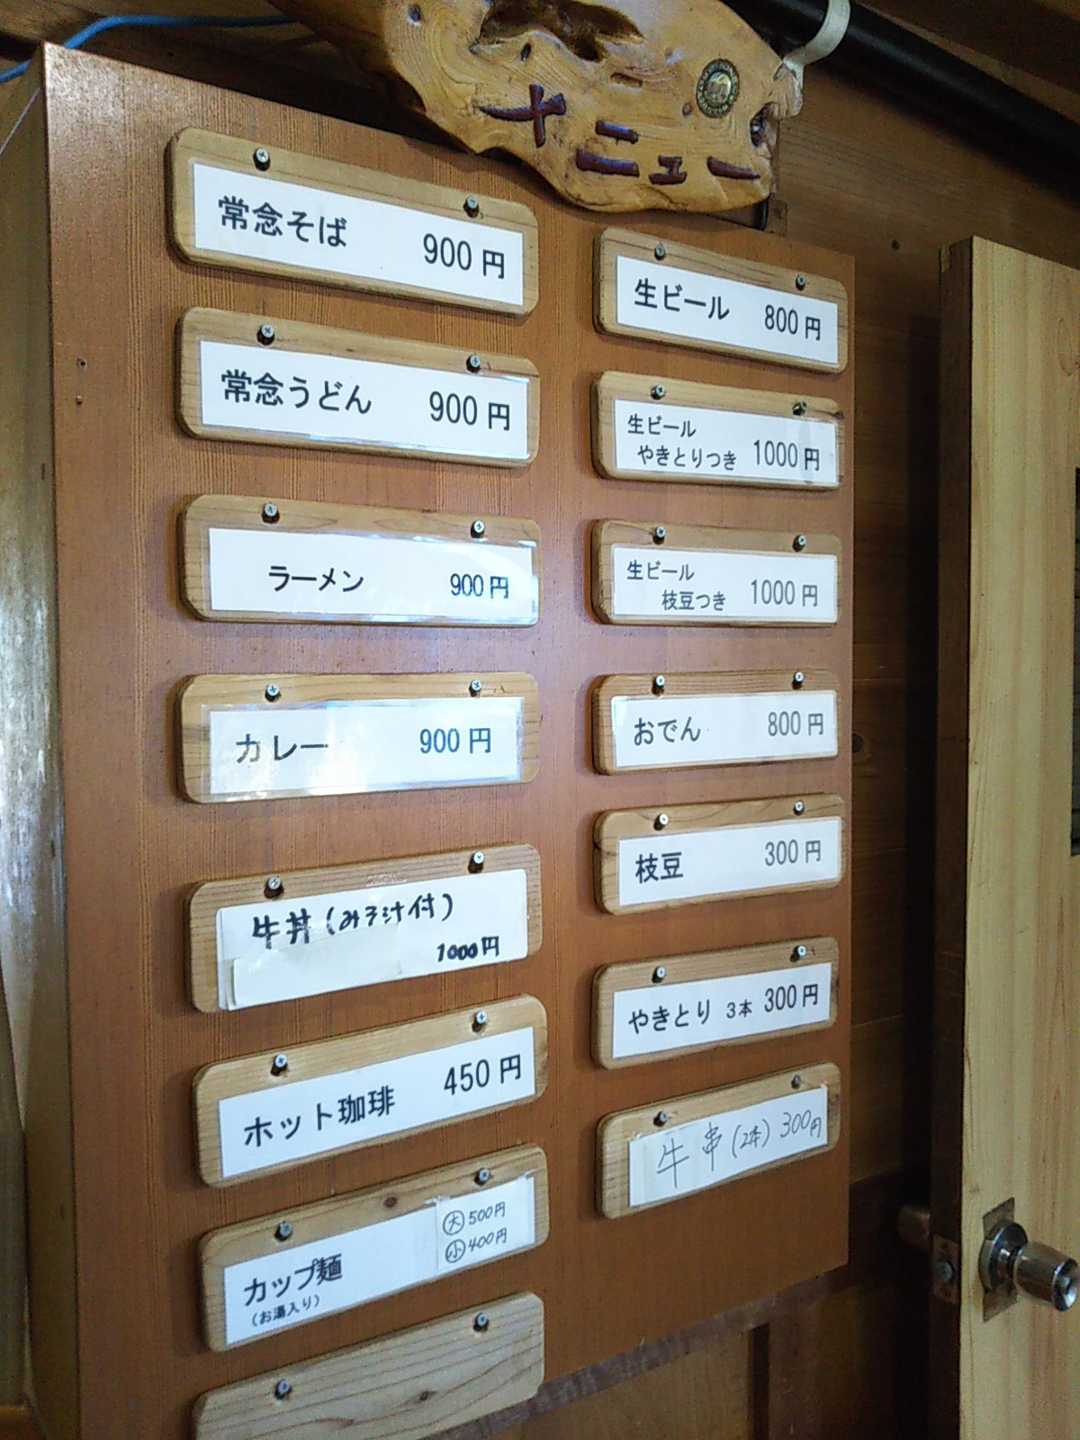 メニュー
常念そば 900円
常念うどん 900円
ラーメン 900円
カレー 900円
牛丼(みそ汁付)
1000円
ホット珈琲 450円
カップ麺
(お湯入り)
大 500円
小 400円
生ビール 800円
生ビール
やきとりつき 1000円
生ビール
枝豆つき 1000円
おでん 800円
枝豆 300円
やきとり 3本 300円
牛串(2本) 300円